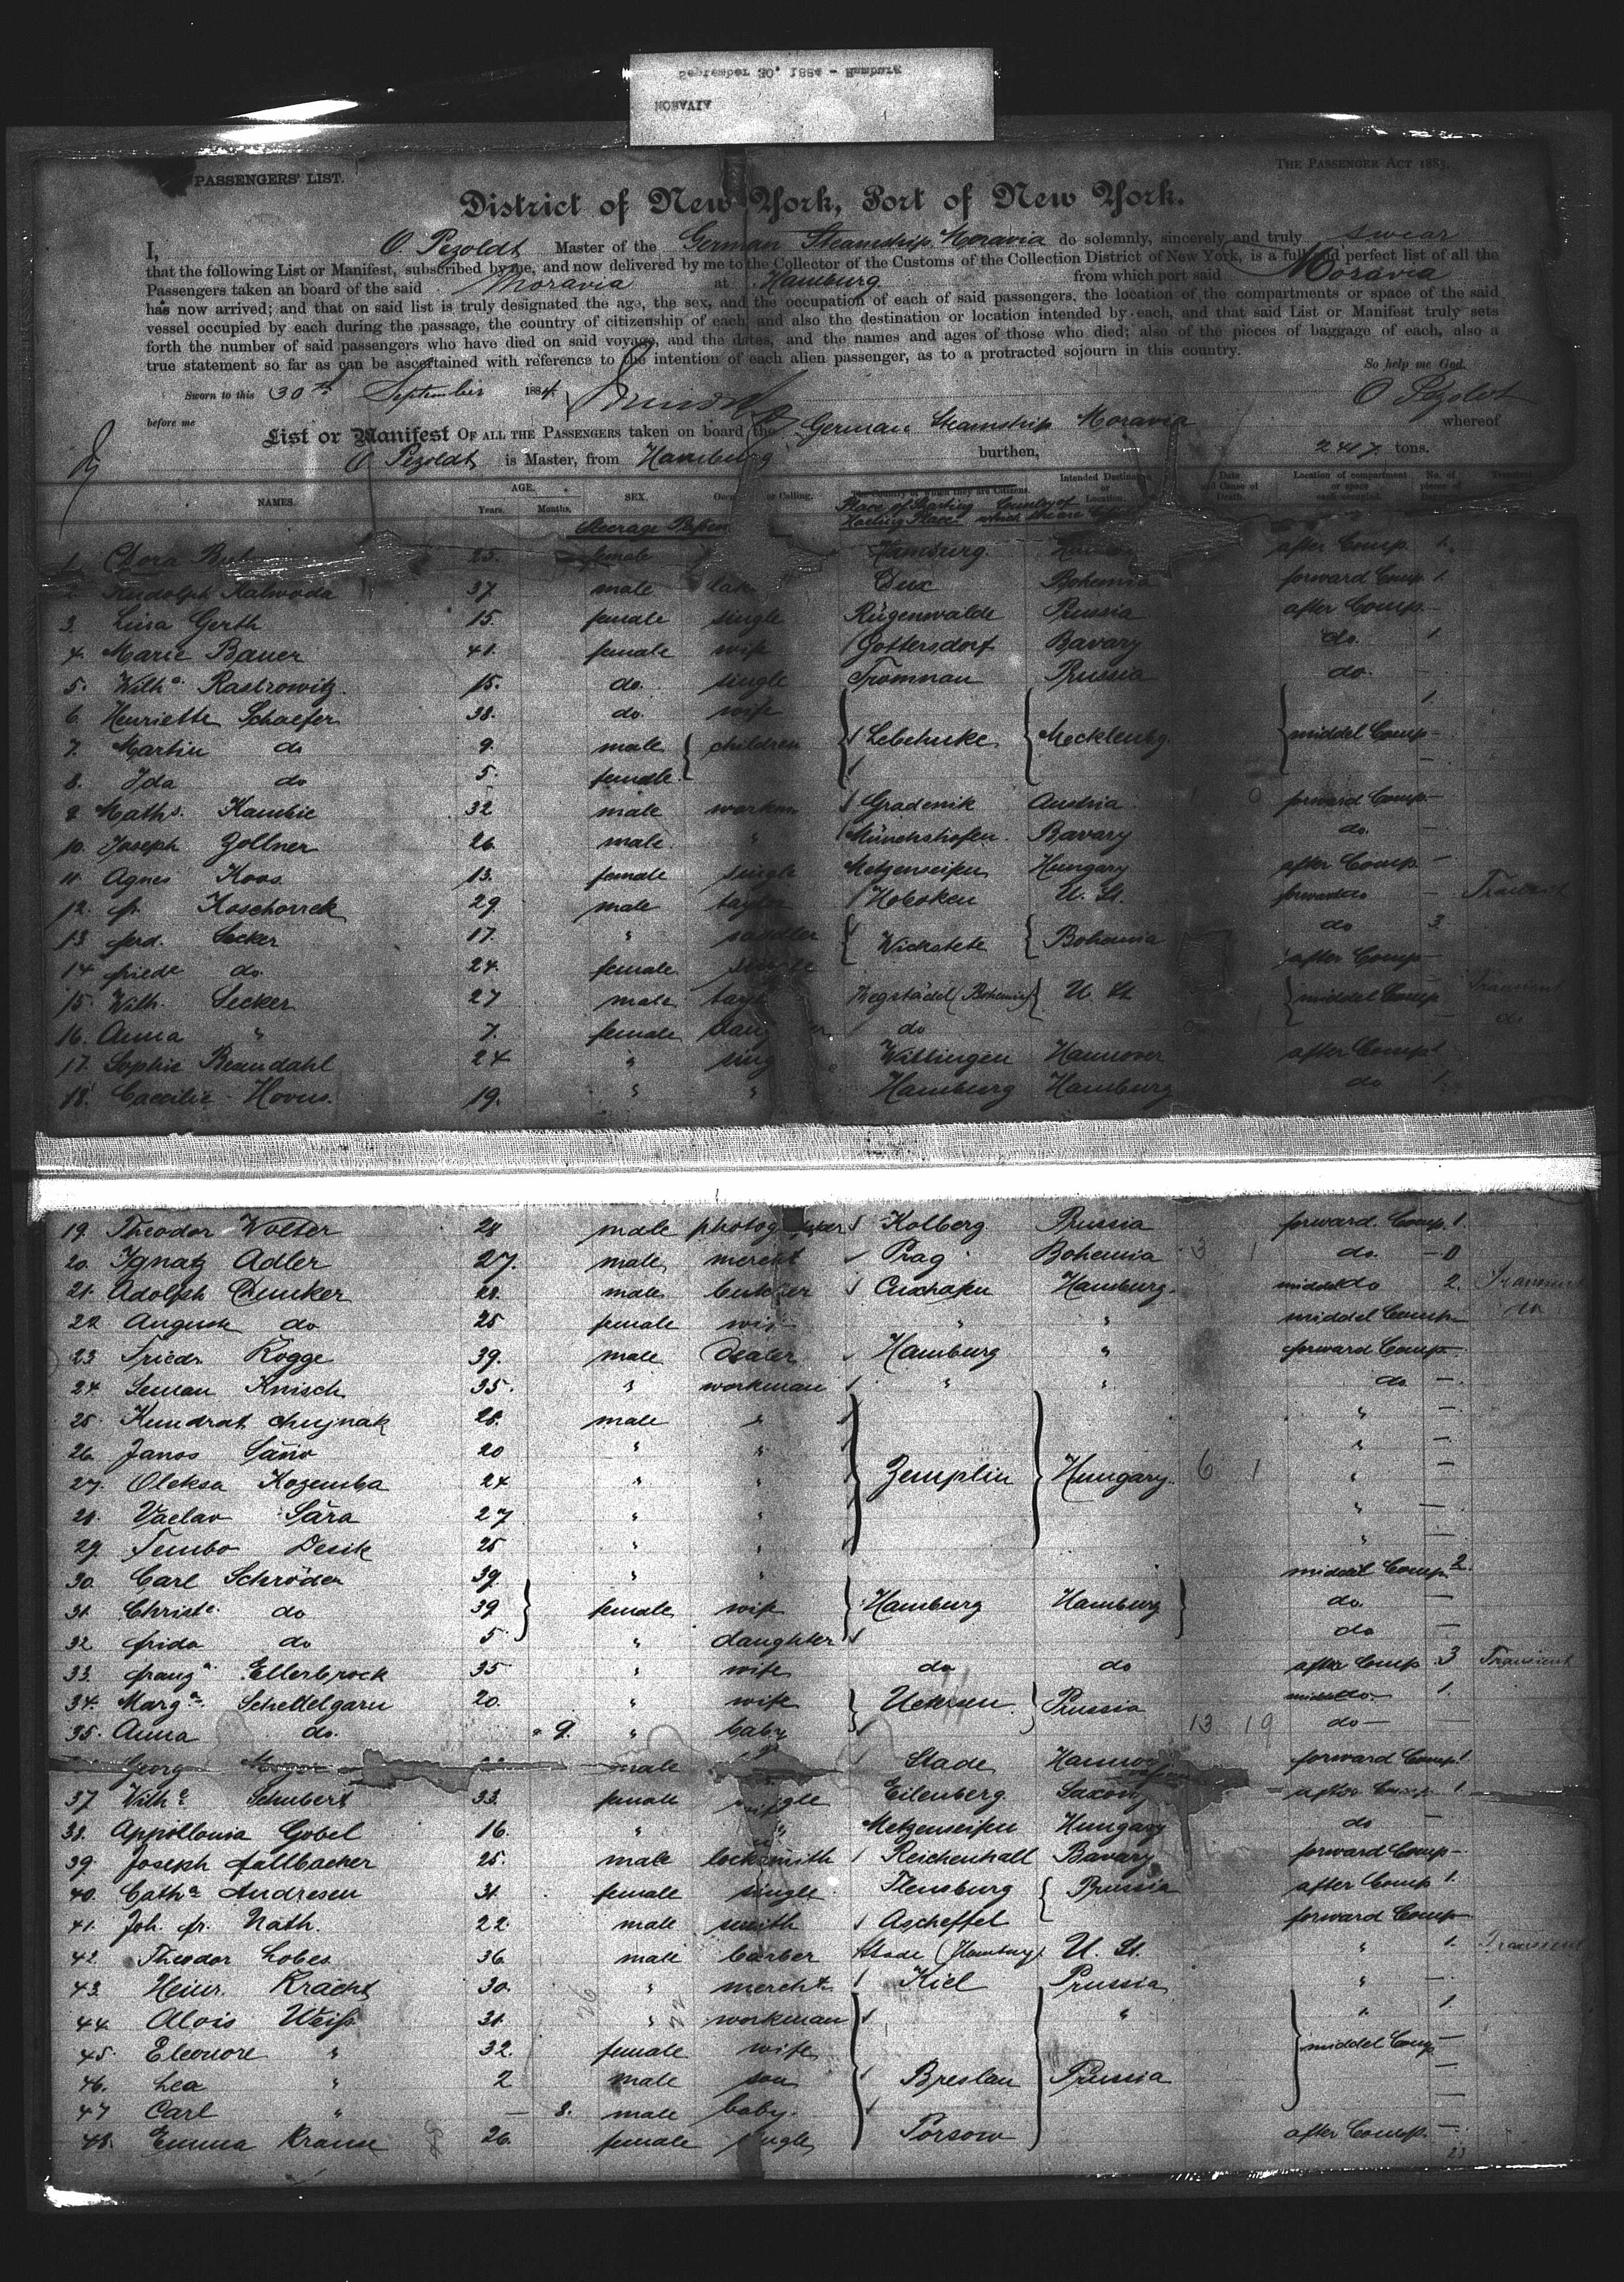 September 30, 1884 - Hamburg
MORAVIA
PASSENGERS' LIST.
THE PASSENGER ACT 1883.
District of New York, Port of New York.
I, O. Pezoldt Master of the German Steamship Moravia do solemnly, sincerely and truly swear
that the following List or Manifest, subscribed by me, and now delivered by me to the Collector of the Customs of the Collection District of New York, is a full and perfect list of all the
Passengers taken an board of the said Moravia at Hamburg from which port said Moravia
has now arrived; and that on said list is truly designated the age, the sex, and the occupation of each of said passengers, the location of the compartments or space of the said
vessel occupied by each during the passage, the country of citizenship of each and also the destination or location intended by each, and that said List or Manifest truly sets
forth the number of said passengers who have died on said voyage, and the dates, and the names and ages of those who died; also of the pieces of baggage of each, also a
true statement so far as can be ascertained with reference to the intention of each alien passenger, as to a protracted sojourn in this country.
So help me God.
Sworn to this 30th September 1884 O Pezoldt
before me
List or Manifest OF ALL THE PASSENGERS taken on board the German Steamship Moravia whereof
O Pezoldt is Master, from Hamburg burthen, 2417 tons.
NAMES. AGE. Years. Months. SEX. or Calling. The Country of which they are Citizens. Intended Destination or Location. Date and Cause of Death. Location of compartment or space each occupied. No. of pieces of
Place of Starting Country of
Steerage
1. Dora 25. female Hamburg after Comp. 1.
2. Rudolph Kalwoda 37 male Dux Bohemia forward Comp. 1.
3. Lina Gerth 15. female single Rügenwalde Prussia after Comp. -
4. Marie Bauer 41. female wife Gottersdorf Bavary do. 1.
5. Wilhe. Rastrowitz. 15. do. single Tromnau Prussia do. -
6. Henriette Schaefer 38. do. wife 1.
7. Martin do 9. male children Mecklenbg. middel Comp -
8. Ida do 5. female. -
9. Maths. Kambic 32 male Gradenik Austria forward Comp -
10. Joseph Zollner 26 male. " Münchshofen Bavary do. -
11. Agnes Koos 13. female single Metzenseifen Hungary after Comp. -
12. fr. Koschorrek 29 male taylor Hoboken U. St. forward do - Transient
13 ferd. Secker 17. " saddler Bohemia do 3.
14 friedr do. 24. female single after Comp -
15. Wilh. Secker 27 male Wegstädel (Bohemia) U. St middel Comp Transient
16. Anna " 7. female do - do
17. Sophie 24 " Wittingen Hannover after Comp 1
18. Caecilie Hovus. 19. " " Hamburg Hamburg do 1.
19. Theodor Wolter 28 male photographer Kolberg Prussia forward. Comp. 1.
20. Ignatz Adler 27. male mercht Prag Bohemia 3 1 do. - 0
21. Adolph Dunker 28. male butcher Cuxhafen Hamburg. middel do 2. Transient
22 August do 25 female " " middel Comp - do
23 Friedr Rogge 39. male Dealer Hamburg " forward Comp -
24 Seman Knisch 35. " workman " " do -
25. Kundrat 25. male " " -
26 Janos 20 " " " -
27. Oleksa Kozemba 24 " " Zemplin Hungary. 6 1 " -
28. Vaclav Sára 27 " " " -
29. Desik 25 " " " -
30. Carl Schröder 39. " " middel Comp. 2.
31. Christe. do 39 female wife Hamburg Hamburg do. -
32 frida do 5 " daughter do -
33. Ellerbrock 35 " wife do do after Comp. 3 Transient
34. Marg. Schelldgarn 20. " wife Uetersen Prussia middel do - 1.
35. Anna do. 9. " baby 13 19 do -
Georg male Stade forward Comp 1
37 Wilhe Schubert 33. female Eilenberg Saxony after Comp. 1.
38. Appollonia Gobel 16. " " Metzenseifen Hungary do -
39. Joseph fallbacher 25. male locksmith Reichenhall Bavary forward Comp -
40. Catha Andresen 31. female single. Flensburg Prussia after Comp 1.
41. Joh. fr. Nath. 22. male smith Ascheffel forward Comp
42. Theodor Lobes 36 male barber Stade (Hamburg) U. St. " 1. Transient
43. Heinr. Kracht 30. " mercht Kiel Prussia " -
44. Alois Weiss 31. " workman " " 1
45. Eleonore " 32. female wife middel Comp -
46. Lea " 2 male son Breslau Prussia -
47 Carl " - 8. male baby. -
48. Emma Krause 26. female single Porsow after Comp. -
23